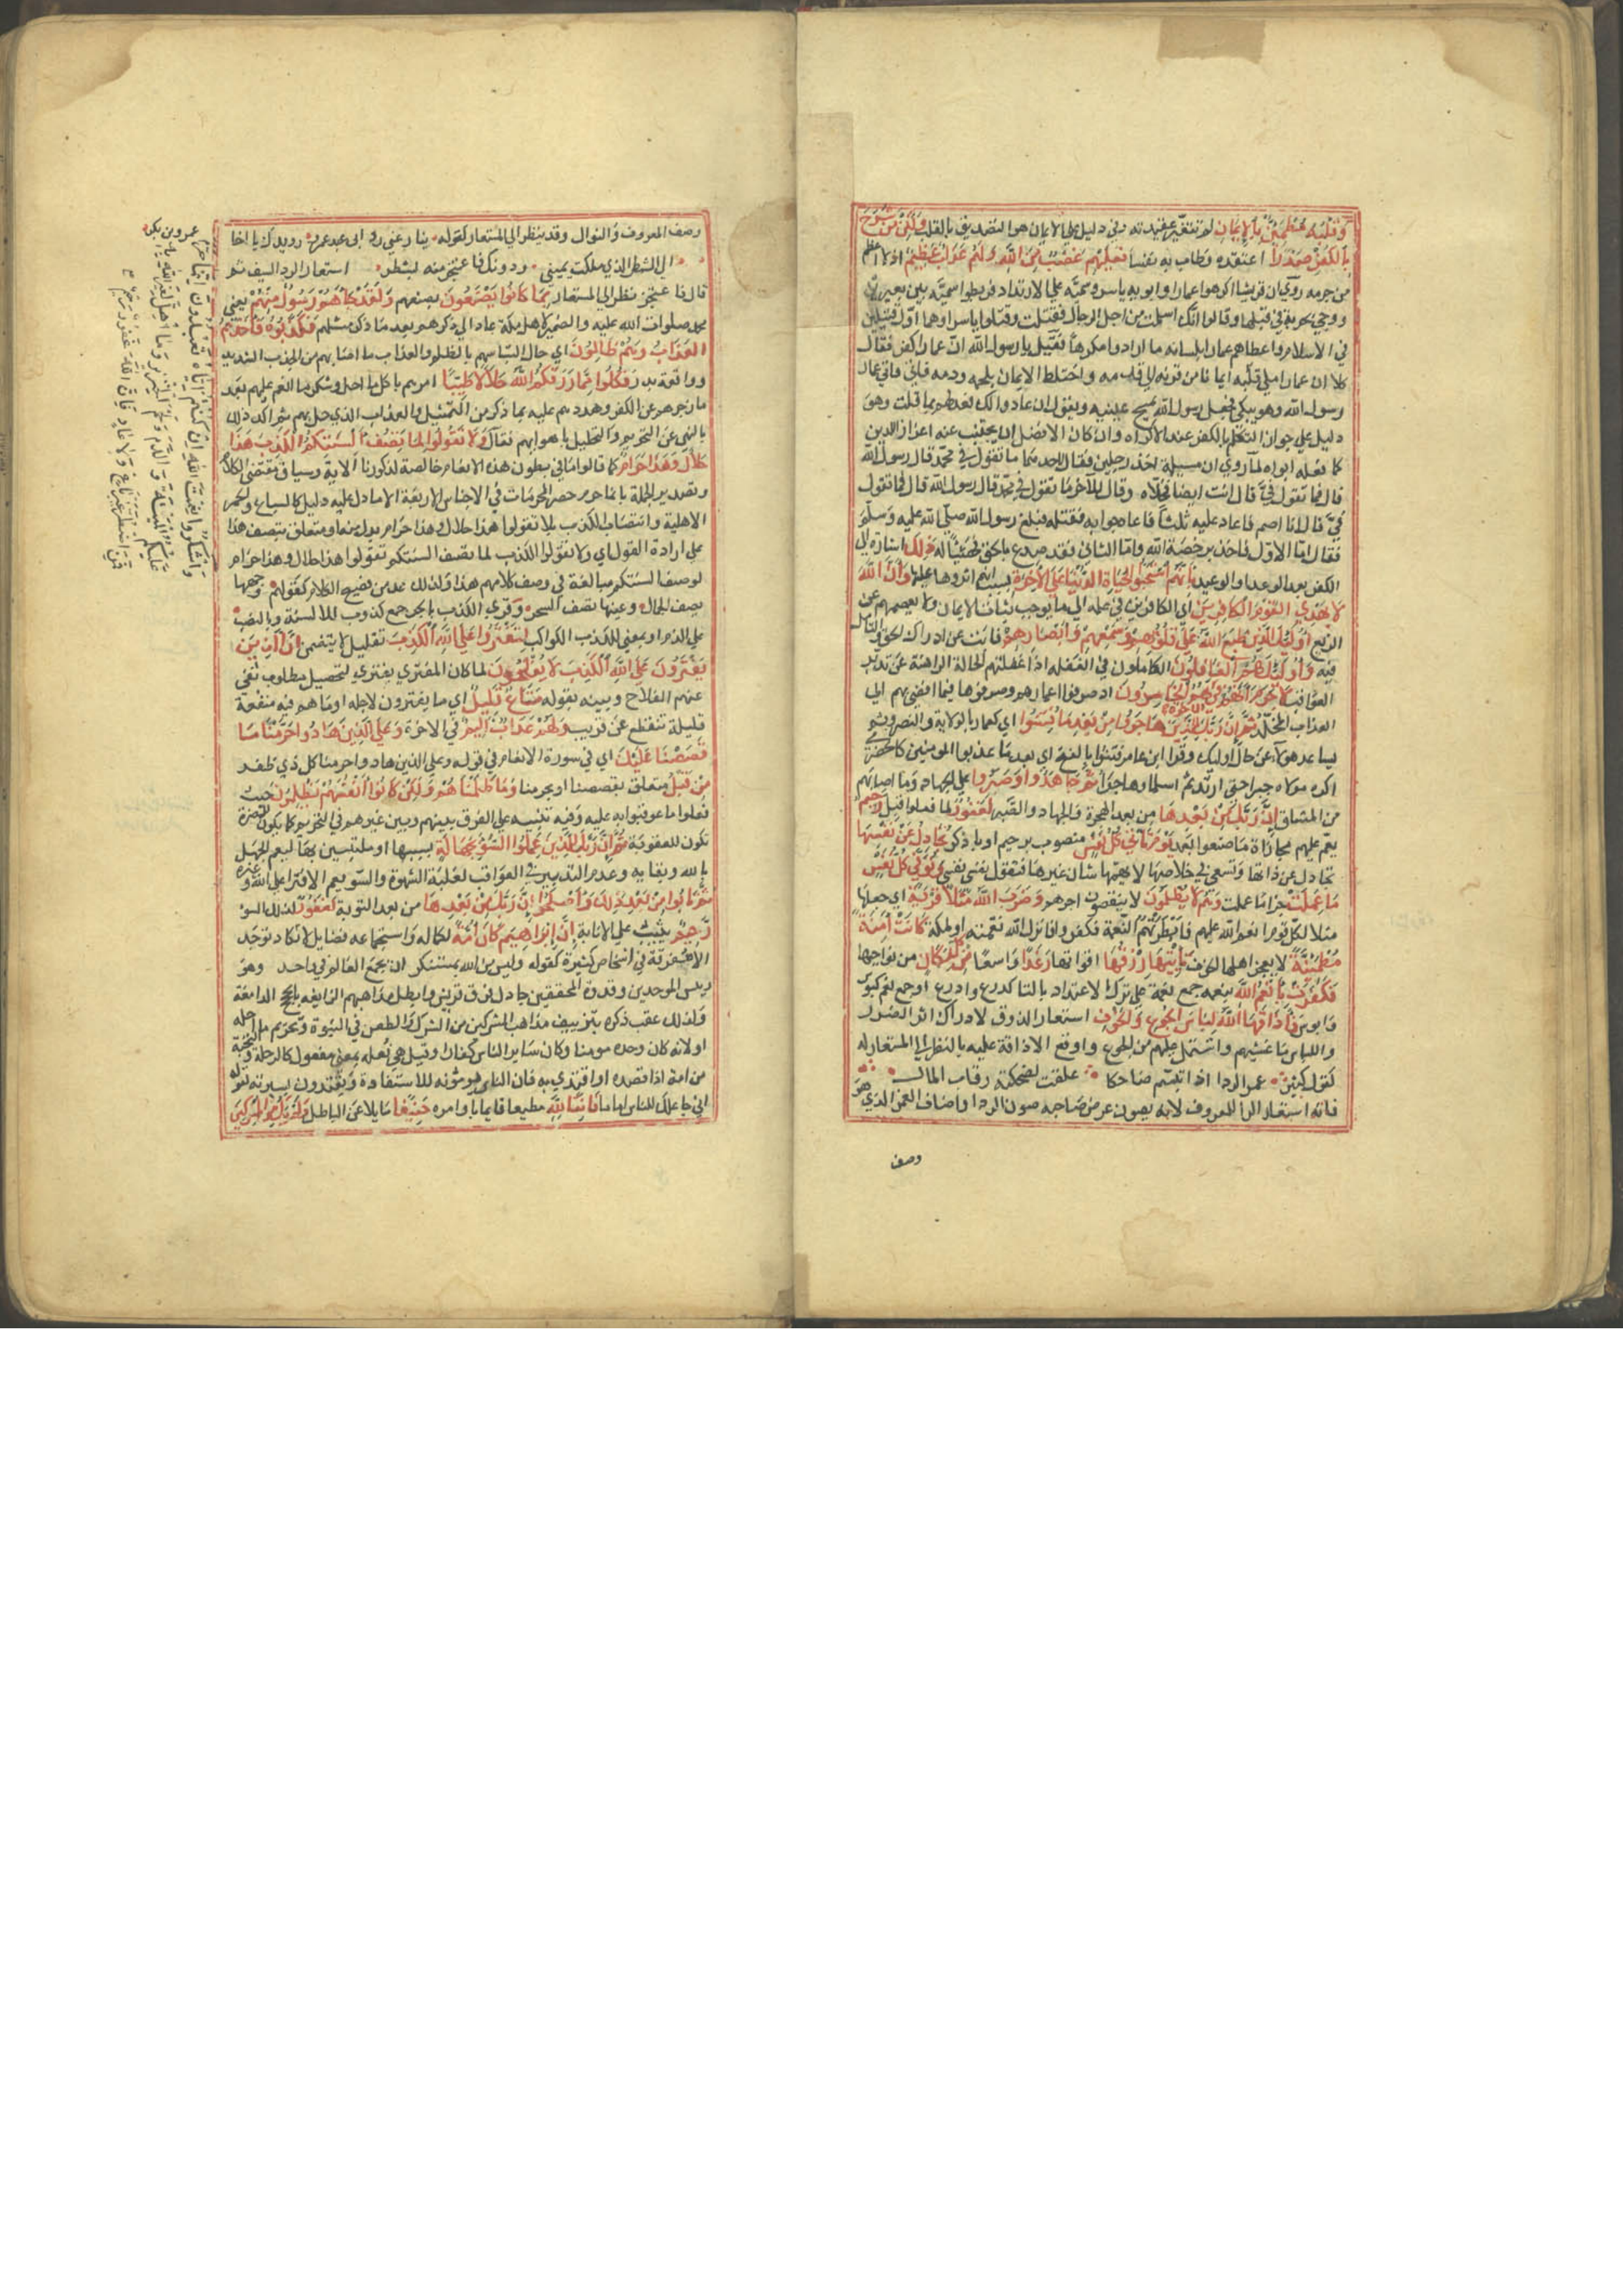 وَقَلْبُهُ مُطْمَئِنٌّ بِالْإِيمَانِ لم تتغيّر عقيدته وفي دليل على الايمان هو التصديق بالقلب وَلَكِنْ مَنْ شَرَحَ
بِالْكُفْرِ صَدْرًا اعتقده وطاب به نفسا فَعَلَيْهِمْ غَضَبٌ مِنَ اللَّهِ وَلَهُمْ عَذَابٌ عَظِيمٌ اذ لا اعظم
من جرمه روي ان قريشا اكرهوا عمارا وابويه ياسر وسميّة على الارتداد فربطوا سميّة بين بعيرين
ووجئ بحربة في قبلها وقالوا انك اسلمت من اجل الرجال فقتلت وقتلوا ياسرا وهما اوّل قتيلين
في الاسلام واعطاهم عمار بلسانه ما ارادوا مكرها فقيل يا رسول الله انّ عمارا كفر فقال
كلا ان عمارا ملئ قلبه ايمانا من قرنه الى قدمه واختلط الايمان بلحمه ودمه فاتى عمار
رسول الله وهو يبكي فجعل رسول الله يمسح عينيه ويقول ان عادوا لك فعد لهم بما قلت وهو
دليل على جواز التكلم بالكفر عند الاكراه وان كان الافضل ان يجتنب عنه اعزازا للدين
كما فعله ابواه لما روي ان مسيلمة اخذ رجلين فقال لاحدهما ما تقول في محمد قال رسول الله
قال فما تقول فيّ قال انت ايضا فخلّاه وقال للآخر ما تقول في محمد قال رسول الله قال فما تقول
فيّ قال انا اصم فاعاد عليه ثلثا فاعاد جوابه فقتله فبلغ رسول الله صلّى الله عليه وسلّم
فقال امّا الاوّل فاخذ برخصة الله وامّا الثاني فقد صدع بالحق فهنيئا له ذَلِكَ اشارة الى
الكفر بعد الايمان او الوعيد بِأَنَّهُمُ اسْتَحَبُّوا الْحَيَاةَ الدُّنْيَا عَلَى الْآخِرَةِ بسبب انهم آثروها عليها وَأَنَّ اللَّهَ
لَا يَهْدِي الْقَوْمَ الْكَافِرِينَ اي الكافرين في علمه الى ما يوجب ثبات الايمان ولا يعصمهم عن
الزيغ أُولَئِكَ الَّذِينَ طَبَعَ اللَّهُ عَلَى قُلُوبِهِمْ وَسَمْعِهِمْ وَأَبْصَارِهِمْ فابت عن ادراك الحق والتامل
فيه وَأُولَئِكَ هُمُ الْغَافِلُونَ الكاملون في الغفلة اذ اغفلتهم الحالة الراهنة عن تدبر
العواقب لَا جَرَمَ أَنَّهُمْ فِي الْآخِرَةِ هُمُ الْخَاسِرُونَ اذ ضيعوا اعمارهم وصرفوها فيما افضى بهم الى
العذاب المخلّد ثُمَّ إِنَّ رَبَّكَ لِلَّذِينَ هَاجَرُوا مِنْ بَعْدِ مَا فُتِنُوا اي كعمار بالولاية والنصر وثم
لتباعد هؤلاء عن حال اولئك وقرا ابن عامر فتنوا بالفتح اي بعد ما عذبوا المومنين كالحضرمي
اكره مولاه جبرا حتى ارتد ثم اسلما وهاجرا ثُمَّ جَاهَدُوا وَصَبَرُوا على الجهاد وما اصابهم
من المشاق إِنَّ رَبَّكَ مِنْ بَعْدِهَا من بعد الهجرة والجهاد والصبر لَغَفُورٌ لما فعلوا قبل رَحِيمٌ
ينعم عليهم مجازاة ما صنعوا بعد يَوْمَ تَأْتِي كُلُّ نَفْسٍ منصوب برحيم او باذكر تُجَادِلُ عَنْ نَفْسِهَا
تجادل عن ذاتها وتسعى في خلاصها لا يهمّها شان غيرها فتقول نفسي نفسي وَتُوَفَّى كُلُّ نَفْسٍ
مَا عَمِلَتْ جزا ما عملت وَهُمْ لَا يُظْلَمُونَ لا ينقصون اجرهم وَضَرَبَ اللَّهُ مَثَلًا قَرْيَةً اي جعلها
مثلا لكل قوم انعم الله عليهم فابطرتهم النعمة فكفروا فانزل الله نقمته او لمكة كَانَتْ آمِنَةً
مُطْمَئِنَّةً لا يزعج اهلها خوف يَأْتِيهَا رِزْقُهَا اقواتها رَغَدًا واسعا مِنْ كُلِّ مَكَانٍ من نواحيها
فَكَفَرَتْ بِأَنْعُمِ اللَّهِ بنعمه جمع نعمة على ترك الاعتداد بالتا كدرع وادرع او جمع نعم كبؤس
وابوس فَأَذَاقَهَا اللَّهُ لِبَاسَ الْجُوعِ وَالْخَوْفِ استعار الذوق لادراك اثر الضرر
واللباس لما غشيهم واشتمل عليهم من الجوع واوقع الاذاقة عليه بالنظر الى المستعار له
كقول كثير غمر الردا اذا تبسّم ضاحكا علقت لضحكته رقاب المال
فانه استعار الردا للمعروف لانه يصون عرض صاحبه صون الردا واضاف الغمر الذي هو
وصف
وصف المعروف والنوال وقد ينظر الى المستعار كقوله ينازعني ردائي عبد عمرو رويدك يا اخا عمرو بن بكر
الى الشطر الذي ملكت يميني ودونك فاعتجر منه بشطر استعار الردا للسيف ثم
قال فاعتجر نظرا الى المستعار بِمَا كَانُوا يَصْنَعُونَ بصنعهم وَلَقَدْ جَاءَهُمْ رَسُولٌ مِنْهُمْ يعني
محمد صلوات الله عليه والضمير لاهل مكة عاد الى ذكرهم بعد ما ذكر مثلهم فَكَذَّبُوهُ فَأَخَذَهُمُ
الْعَذَابُ وَهُمْ ظَالِمُونَ اي حال التباسهم بالظلم والعذاب ما اصابهم من الجدب الشديد
ووقعة بدر فَكُلُوا مِمَّا رَزَقَكُمُ اللَّهُ حَلَالًا طَيِّبًا امرهم باكل ما احل وشكر ما انعم عليهم بعد
ما زجرهم عن الكفر وهددهم عليه بما ذكر من التمثيل والعذاب الذي حل بهم ثم اكد ذلك
بالنهى عن التحريم والتحليل باهوائهم فقال وَلَا تَقُولُوا لِمَا تَصِفُ أَلْسِنَتُكُمُ الْكَذِبَ هَذَا
حَلَالٌ وَهَذَا حَرَامٌ كما قالوا ما في بطون هذه الانعام خالصة لذكورنا الاية وسياق مقتضى الكلام
وتصدير الجملة بانما حرم حصر المحرمات في الاجناس الاربعة الا ما دل عليه دليل كالسباع والحمر
الاهلية وانتصاب الكذب بلا تقولوا هذا حلال وهذا حرام بدل منه او متعلق بتصف هذا
على ارادة القول اي ولا تقولوا الكذب لما تصف السنتكم فتقولوا هذا حلال وهذا حرام
لوصف السنتكم مبالغة في وصف كلامهم هذا ولذلك عد من فصيح الكلام كقولهم وجهها
يصف الجمال وعينها تصف السحر وقرئ الكذب بالجر جمع كذوب للالسنة وبالنصب
على الذم او بمعنى الكذب الكواكب لِتَفْتَرُوا عَلَى اللَّهِ الْكَذِبَ تعليل لا يتضمن إِنَّ الَّذِينَ
يَفْتَرُونَ عَلَى اللَّهِ الْكَذِبَ لَا يُفْلِحُونَ لما كان المفتري يفتري لتحصيل مطلوب نفى
عنهم الفلاح وبينه بقوله مَتَاعٌ قَلِيلٌ اي ما يفترون لاجله او ما هم فيه منفعة
قليلة تنقطع عن قريب وَلَهُمْ عَذَابٌ أَلِيمٌ في الاخرة وَعَلَى الَّذِينَ هَادُوا حَرَّمْنَا مَا
قَصَصْنَا عَلَيْكَ اي في سورة الانعام في قوله وعلى الذين هادوا حرمنا كل ذي ظفر
مِنْ قَبْلُ متعلق بقصصنا او بحرمنا وَمَا ظَلَمْنَاهُمْ وَلَكِنْ كَانُوا أَنْفُسَهُمْ يَظْلِمُونَ حيث
فعلوا ما عوقبوا به عليه وفيه تنبيه على الفرق بينهم وبين غيرهم في التحريم كما يكون للمضرة
تكون للعقوبة ثُمَّ إِنَّ رَبَّكَ لِلَّذِينَ عَمِلُوا السُّوءَ بِجَهَالَةٍ بسببها او ملتبسين بها ليعم الجهل
بالله وبعقابه وعدم التدبير في العواقب لغلبة الشهوة والسّو يعم الافترا على الله وغيره
ثُمَّ تَابُوا مِنْ بَعْدِ ذَلِكَ وَأَصْلَحُوا إِنَّ رَبَّكَ مِنْ بَعْدِهَا من بعد التوبة لَغَفُورٌ لذلك السو
رَحِيمٌ يثيب على الانابة إِنَّ إِبْرَاهِيمَ كَانَ أُمَّةً لكماله واستجماعه فضايل لا تكاد توجد
الا متفرقة في اشخاص كثيرة كقوله وليس من الله بمستنكر ان يجمع العالم في واحد وهو
رئيس الموحدين وقدوة المحققين جادل فرق قريش وابطل مذاهبهم الزايغة بالحجج الدامغة
ولذلك عقب ذكره بتزييف مذاهب المشركين من الشرك والطعن في النبوة وتحريم ما احله
او لانه كان وحده مومنا وكان ساير الناس كفارا وقيل هي فعلة بمعنى مفعول كالرحلة والنخبة
من امه اذا قصده او اقتدى به فان الناس يؤمونه للاستفادة ويقتدون بسيرته لقوله
اني جاعلك للناس اماما قَانِتًا لِلَّهِ مطيعا قايما باوامره حَنِيفًا مايلا عن الباطل وَلَمْ يَكُ مِنَ الْمُشْرِكِينَ
وَاشْكُرُوا نِعْمَتَ اللَّهِ إِنْ كُنْتُمْ إِيَّاهُ تَعْبُدُونَ إِنَّمَا حَرَّمَ
عَلَيْكُمُ الْمَيْتَةَ وَالدَّمَ وَلَحْمَ الْخِنْزِيرِ وَمَا أُهِلَّ لِغَيْرِ اللَّهِ بِهِ
فَمَنِ اضْطُرَّ غَيْرَ بَاغٍ وَلَا عَادٍ فَإِنَّ اللَّهَ غَفُورٌ رَحِيمٌ